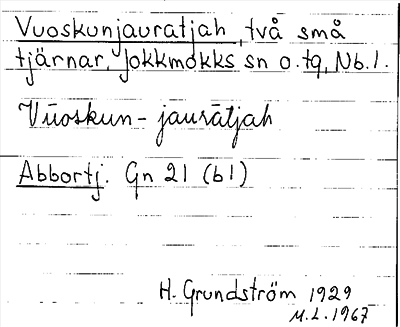 Vuoskunjauratjah, två små
tjärnar, Jokkmokks sn o. tg, Nb. l.
Vŭoskun-jaurātjah
Abbortj. Gn 21 (b1)
H. Grundström 1929
M.L. 1967